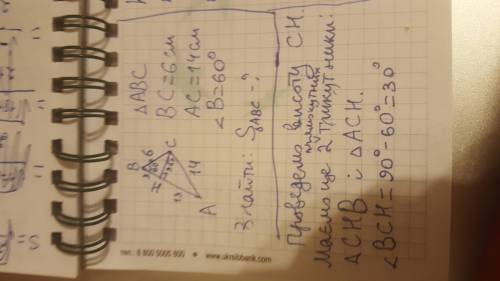 △ABC
BC=6см
AC=14см
∠B=60°
B
6
C
14
A
13
Знайти: S△ABC -?
Проведемо висоту CH.
Маємо ще 2 прямокутних трикутники:
△CHB і △ACH.
∠BCH=90°-60°=30°
тел.: 8 800 5005 800 • www.ukrsibbank.com